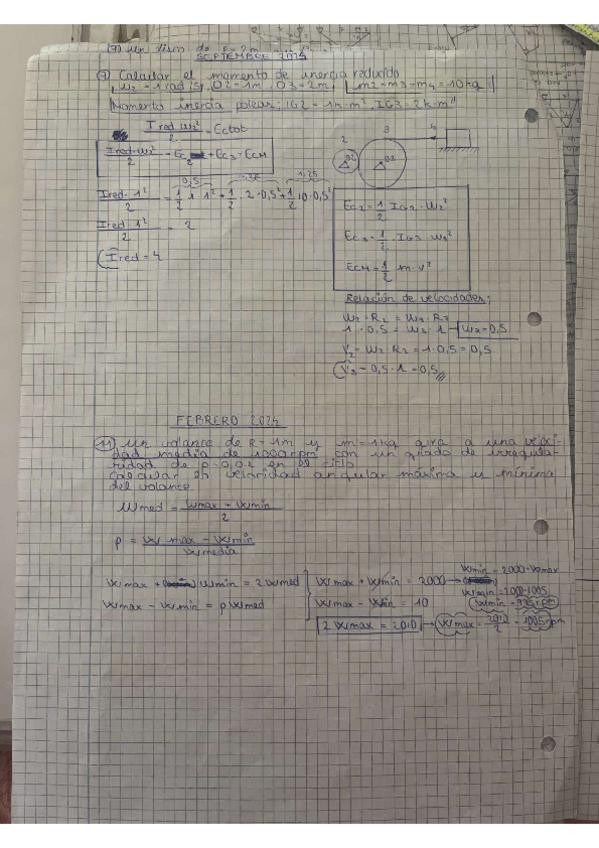 19) Un disco de
SEPTIEMBRE 2024
9) Calcular el momento de inercia reducido
W2 = 1 rad/s, O2 = 1m, O3 = 2m, m2 = m3 = m4 = 10 kg
Momento inercia polear: IG2 = 1k·m², IG3 = 2k·m²
Ired·W2²/2 = Ectot
Ired·W2²/2 = Ec2 + Ec3 + ECM
0,5 0,25 1,25
Ired·1²/2 = 1/2·1·1² + 1/2·2·0,5² + 1/2 10·0,5²
Ired·1²/2 = 2
Ired = 4
2 3 4
O2 O2
Ec2 = 1/2 IG2·W2²
Ec3 = 1/2 IG3·W3²
ECM = 1/2 m·V²
Relación de velocidades:
W2·R2 = W3·R3
1·0,5 = W3·1 → W3 = 0,5
V2 = W2·R2 = 1·0,5 = 0,5
V3 = 0,5·1 = 0,5
FEBRERO 2024
11) Un volante de R = 1m y m = 1kg gira a una veloci-
dad media de 1000rpm con un grado de irregula-
ridad de p = 0,01 en el ciclo
Calcular la velocidad angular máxima y mínima
del volante
Wmed = (Wmax + Wmin)/2
p = (Wmax - Wmin)/Wmedia
Wmax + Wmin = 2Wmed
Wmax - Wmin = pWmed
Wmax + Wmin = 2000
Wmax - Wmin = 10
2Wmax = 2010 → Wmax = 2010/2 = 1005rpm
Wmin = 2000 - Wmax
Wmin = 2000 - 1005
Wmin = 995 rpm